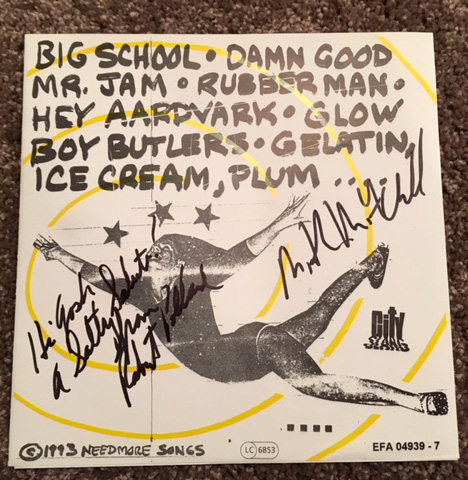 BIG SCHOOL • DAMN GOOD
MR. JAM • RUBBER MAN •
HEY AARDVARK • GLOW
BOY BUTLERS • GELATIN,
ICE CREAM, PLUM ....
Hi Josh
A Salty Salute!
From
Robert Pollard
Mitch Mitchell
City
SLANG
©1993 NEEDMORE SONGS
LC 6853
EFA 04939 - 7